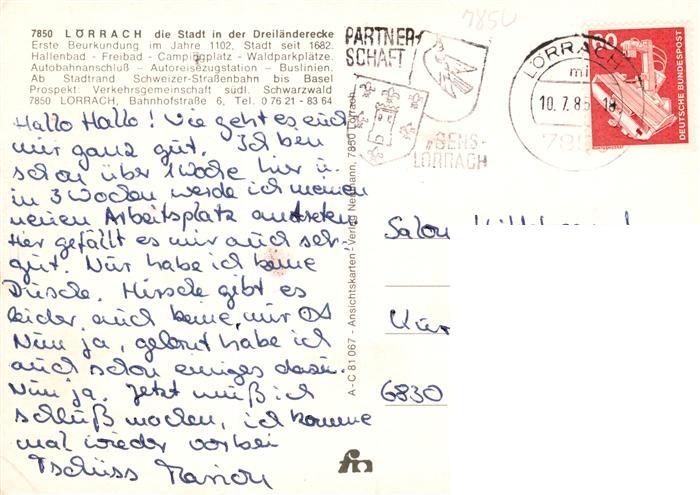 7850 LÖRRACH die Stadt in der Dreiländerecke
Erste Beurkundung im Jahre 1102, Stadt seit 1682.
Hallenbad - Freibad - Campingplatz - Waldparkplätze.
Autobahnanschluß - Autoreisezugstation - Buslinien.
Ab Stadtrand Schweizer-Straßenbahn bis Basel
Prospekt: Verkehrsgemeinschaft südl. Schwarzwald
7850 LÖRRACH, Bahnhofstraße 6, Tel. 0 76 21 - 83 64
Hallo Hallo! Wie geht es euch
mir ganz gut. Ich bin
schon über 1 Woche hier u.
in 3 Wochen werde ich meinen
neuen Arbeitsplatz antreten.
Hier gefällt es mir auch sehr
gut. Nur habe ich keine
Dusche. Hirsche gibt es
leider auch keine, nur
Nun ja, gelernt habe ich
auch schon einiges dazu.
Nun ja. Jetzt muß ich
schluß machen, ich komme
mal wieder vorbei
Tschüss Marion
A-C 81 067 - Ansichtskarten-Verlag Neumann, 7850 Lörrach
7850
PARTNER-
SCHAFT
SENS-
LÖRRACH
LÖRRACH 1
10.7.8
18
80
DEUTSCHE BUNDESPOST
Salon
6830